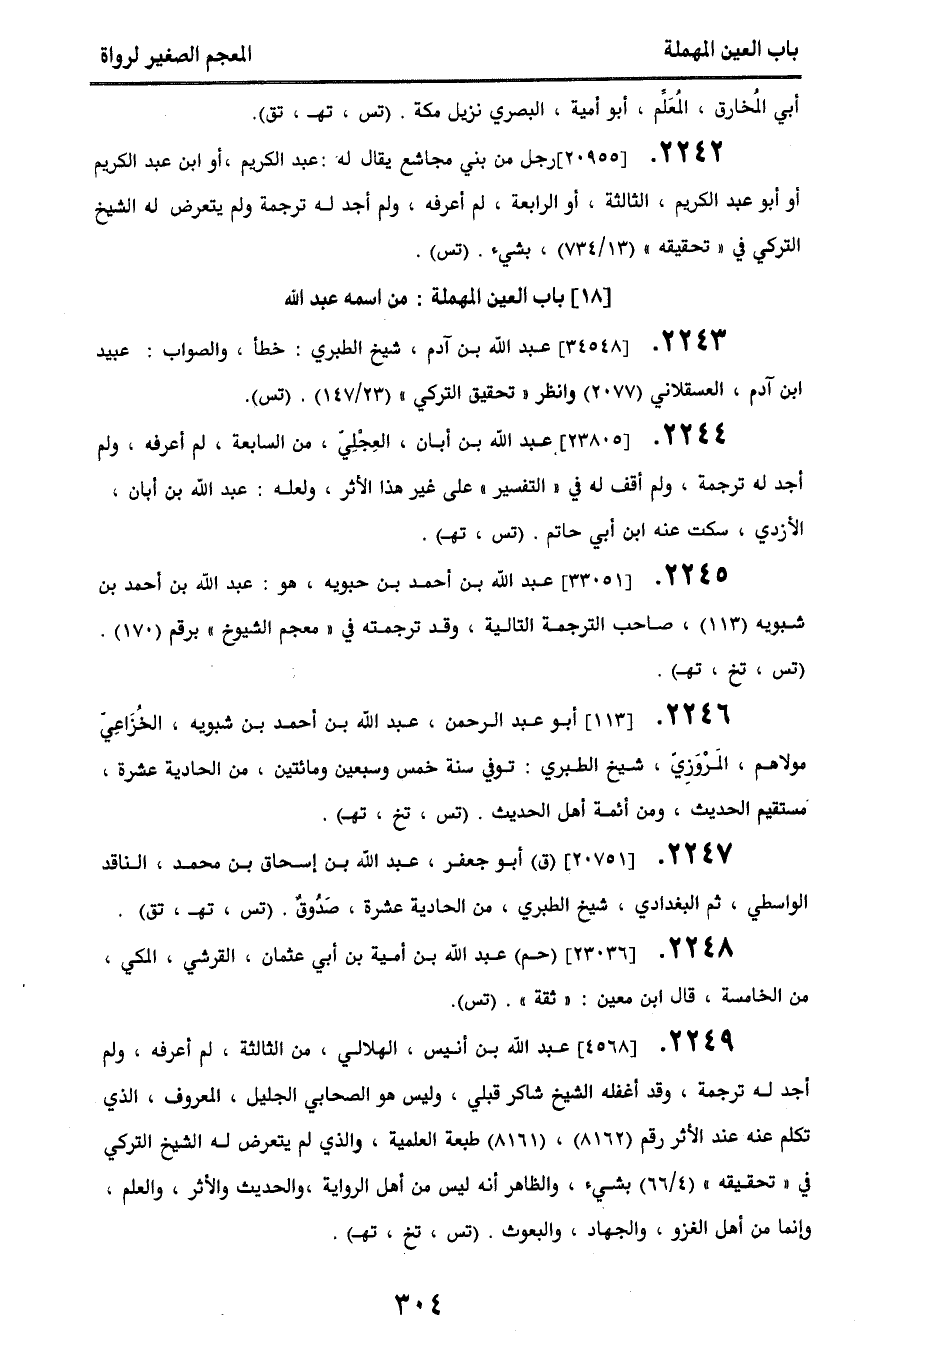 باب العين المهملة
المعجم الصغير لرواة
أبي المُخارق ، المُعَلَّم ، أبو أمية ، البصري نزيل مكة . (تس ، تهـ ، تق).
٢٢٤٢. [٢٠٩٥٥]رجل من بني مجاشع يقال له :عبد الكريم ،أو ابن عبد الكريم
أو أبو عبد الكريم ، الثالثة ، أو الرابعة ، لم أعرفه ، ولم أجد لـه ترجمة ولم يتعرض له الشيخ
التركي في « تحقيقه » (٧٣٤/١٣) ، بشيء . (تس) .
[١٨] باب العين المهملة : من اسمه عبد الله
٢٢٤٣. [٣٤٥٤٨] عـبد الله بـن آدم ، شيخ الطبري : خطأ ، والصواب : عبيد
ابن آدم ، العسقلاني (٢٠٧٧) وانظر « تحقيق التركي » (١٤٧/٢٣) . (تس).
٢٢٤٤. [٢٣٨٠٥] عـبد الله بـن أبـان ، العِجْلِيّ ، من السابعة ، لم أعرفه ، ولم
أجد له ترجمة ، ولم أقف له في « التفسير » على غير هذا الأثر ، ولعلـه : عبد الله بن أبان ،
الأزدي ، سكت عنه ابن أبي حاتم . (تس ، تهـ) .
٢٢٤٥. [٣٣٠٥١] عـبد الله بـن أحمد بـن حبويه ، هو : عبد الله بن أحمد بن
شـبويه (١١٣) ، صـاحب الترجمـة التالـية ، وقـد ترجمـته في « معجم الشيوخ » برقم (١٧٠) .
(تس ، تخ ، تهـ) .
٢٢٤٦. [١١٣] أبـو عـبد الـرحمن ، عـبد الله بـن أحمـد بـن شبويه ، الخُزَاعِيّ
مولاهـم ، المَرْوَزِيّ ، شـيخ الطـبري : تـوفي سنة خمس وسبعين ومائتين ، من الحادية عشرة ،
مستقيم الحديث ، ومن أئمـة أهل الحديث . (تس ، تخ ، تهـ) .
٢٢٤٧. [٢٠٧٥١] (ق) أبـو جعفـر ، عـبد الله بـن إسـحاق بـن محمـد ، الـناقد
الواسطي ، ثم البغدادي ، شيخ الطبري ، من الحادية عشرة ، صَدُوقٌ . (تس ، تهـ ، تق) .
٢٢٤٨. [٢٣٠٣٦] (حـم) عبـد الله بـن أمية بن أبي عثمان ، القرشي ، المكي ،
من الخامسة ، قال ابن معين : « ثقة » . (تس).
٢٢٤٩. [٤٥٦٨] عـبد الله بـن أنـيس ، الهلالـي ، من الثالثة ، لم أعرفه ، ولم
أجد لـه ترجمة ، وقد أغفله الشيخ شاكر قبلي ، وليس هو الصحابي الجليل ، المعروف ، الذي
تكلم عنه عند الأثر رقم (٨١٦٢) ، (٨١٦١) طبعة العلمية ، والذي لم يتعرض لـه الشيخ التركي
في « تحقـيقه » (٦٦/٤) بشـيء ، والظاهر أنه ليس من أهل الرواية ،والحديث والأثر ، والعلم ،
وإنما من أهل الغزو ، والجهاد ، والبعوث . (تس ، تخ ، تهـ) .
٣٠٤